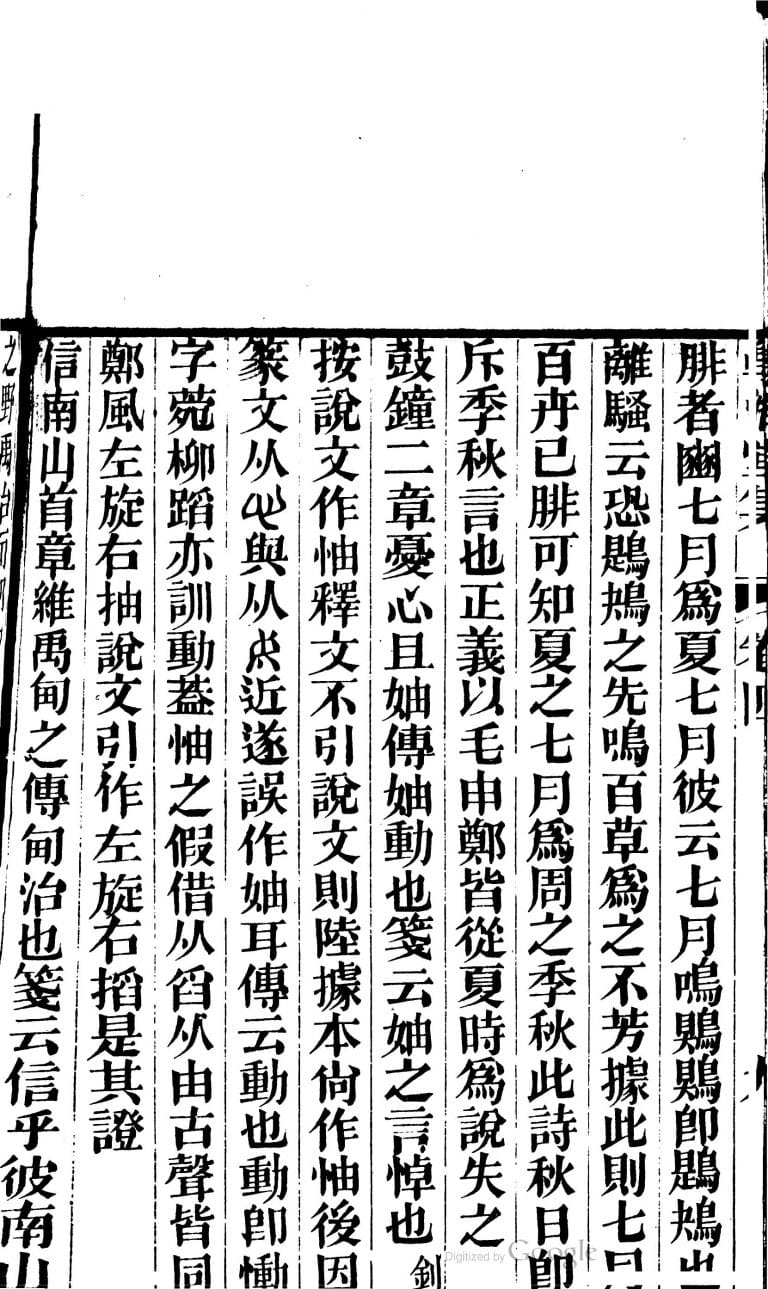 腓者豳七月爲夏七月彼云七月鳴鵙鵙卽鶗鴂也
離騷云恐鶗鴂之先鳴百草爲之不芳據此則七月
百卉已腓可知夏之七月爲周之季秋此詩秋日卽
斥季秋言也正義以毛申鄭皆從夏時爲說失之
鼓鐘二章憂心且妯傳妯動也箋云妯之言悼也 釗
按說文作怞釋文不引說文則陸據本尙作怞後因
篆文从心與从女近遂誤作妯耳傳云動也動卽慟
字菀柳蹈亦訓動葢怞之假借从舀从由古聲皆同
鄭風左旋右抽說文引作左旋右搯是其證
信南山首章維禹甸之傳甸治也箋云信乎彼南山
之野禹治而
Digitized by Google